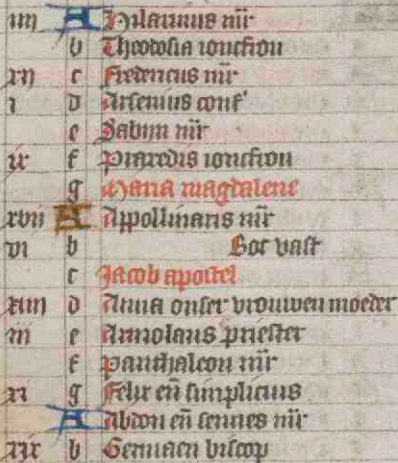 iiij A Hilarinus mr
b Theodosia joncfrou
xij c Fredericus mr
i d Arsenius conf'
e Sabyn mr
ix f Praxedis joncfrou
g Maria magdalene
xvij A Appollinaris mr
vi b Sor vast
c Jacob apostel
xiiij d Anna onser vrouwen moeder
iij e Annolaus priester
f panthaleon mr
xi g Felix en simplicius
A Abdon en sennes mr
xix b Germaen biscop